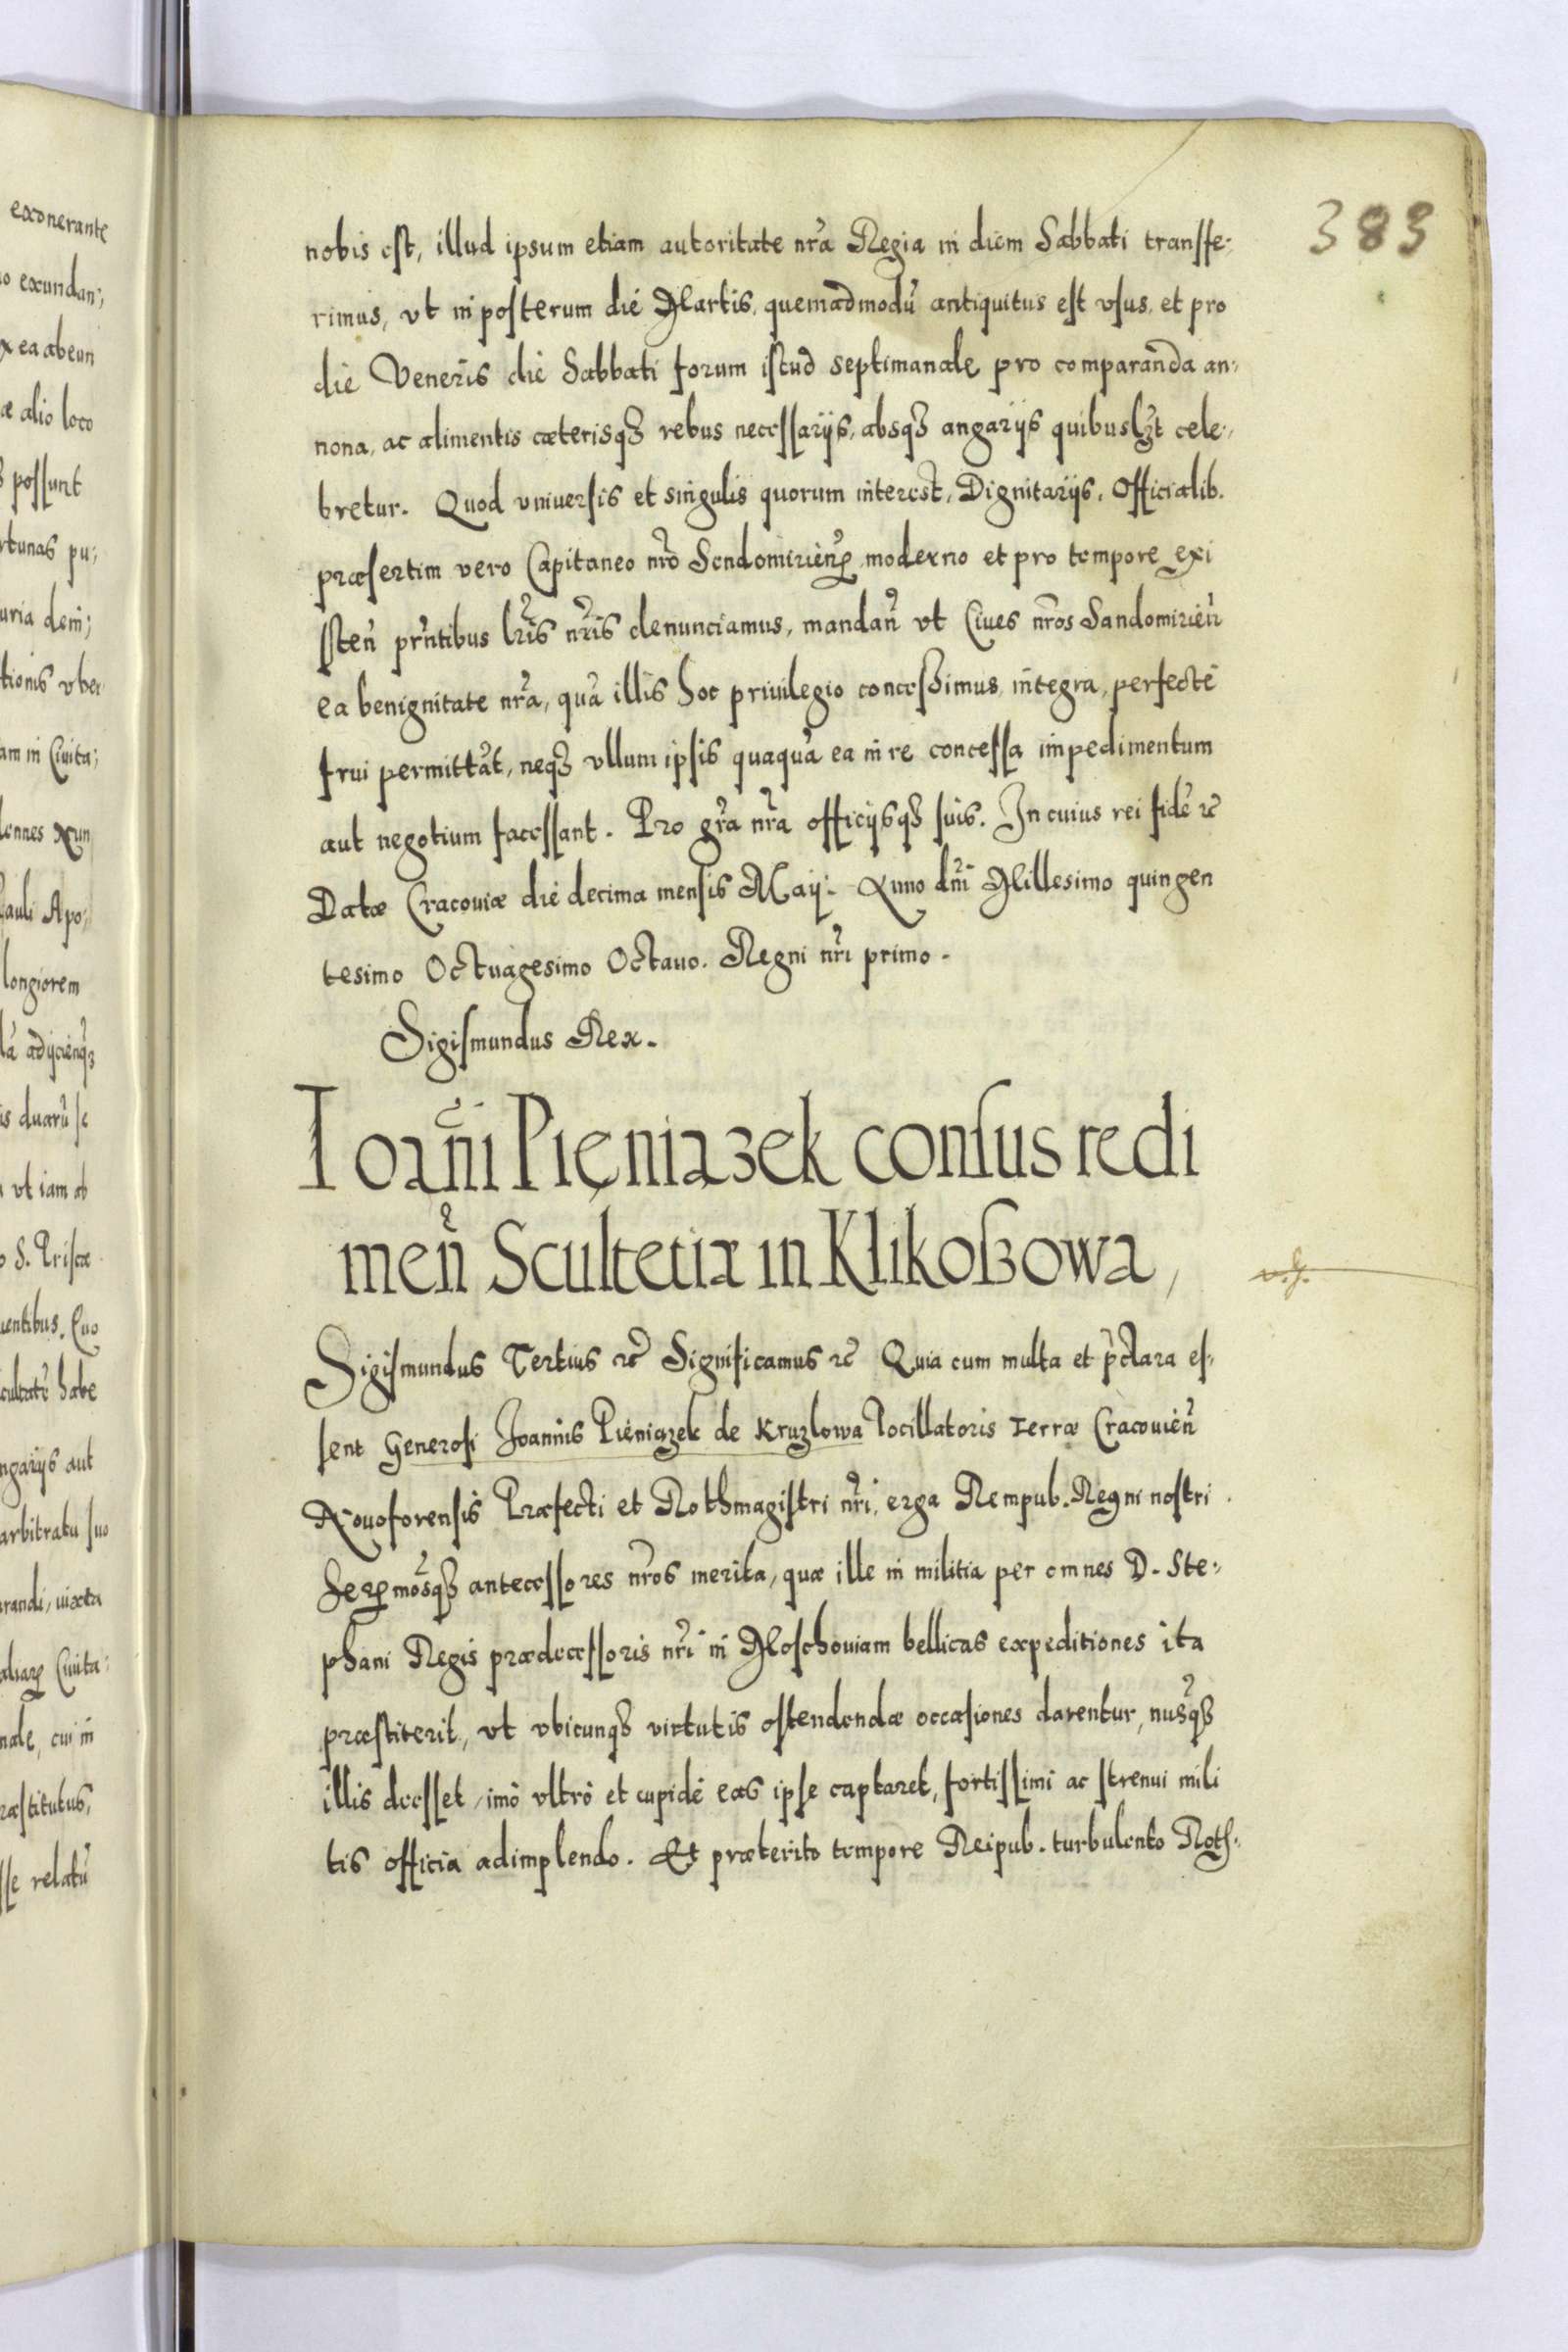 383
nobis est, illud ipsum etiam autoritate nr̃a Regia in diem Sabbati transfe-
rimus, vt in posterum die Martis, quemadmodũ antiquitus est vsus, et pro
die Veneris die Sabbati forum istud septimanale pro comparanda an-
nona, ac alimentis cæterisqȝ rebus necessarijs, absqȝ angarijs quibuslȝt cele-
bretur. Quod vniuersis et singulis quorum interest, Dignitarijs, Officialib.
præsertim vero Capitaneo nr̃o Sendomirien̄ moderno et pro tempore exi
sten̄ prñtibus lr̃is nr̃is denunciamus, mandan̄ vt Ciues nr̃os Sandomirien̄
ea benignitate nr̃a, quã illis hoc priuilegio concessimus, integra, perfectè
frui permittãt, neqȝ vllum ipsis quaquã ea in re concessa impedimentum
aut negotium facessant. Pro gr̃a nr̃a officijsqȝ suis. In cuius rei fidẽ ꝛc̃
Datæ Cracouiæ die decima mensis Maij. Anno dñi Millesimo quingen
tesimo Octuagesimo Octauo. Regni nr̃i primo.
Sigismundus Rex.
Ioañi Pięniązek consus redi
men̄ Scultetiæ in Klikoßowa,
Sigismundus Tertius ꝛc̃ Significamus ꝛc̃ Quia cum multa et p̃clara es-
sent Generosi Joannis Pieniązek de Kruzlowa Pocillatoris terræ Cracouien̄
Nouoforensis Præfecti et Rothmagistri nr̃i, erga Rempub. Regni nostri
Serꝫmosqȝ antecessores nr̃os merita, quæ ille in militia per omnes D. Ste-
phani Regis prædecessoris nr̃i in Moschouiam bellicas expeditiones ita
præstiterit, vt vbicunqȝ virtutis ostendendæ occasiones darentur, nusq̃ȝ
illis deesset, imò vltrò et cupidè eas ipse captaret, fortissimi ac strenui mili
tis officia adimplendo. Et præterito tempore Reipub. turbulento Roth-